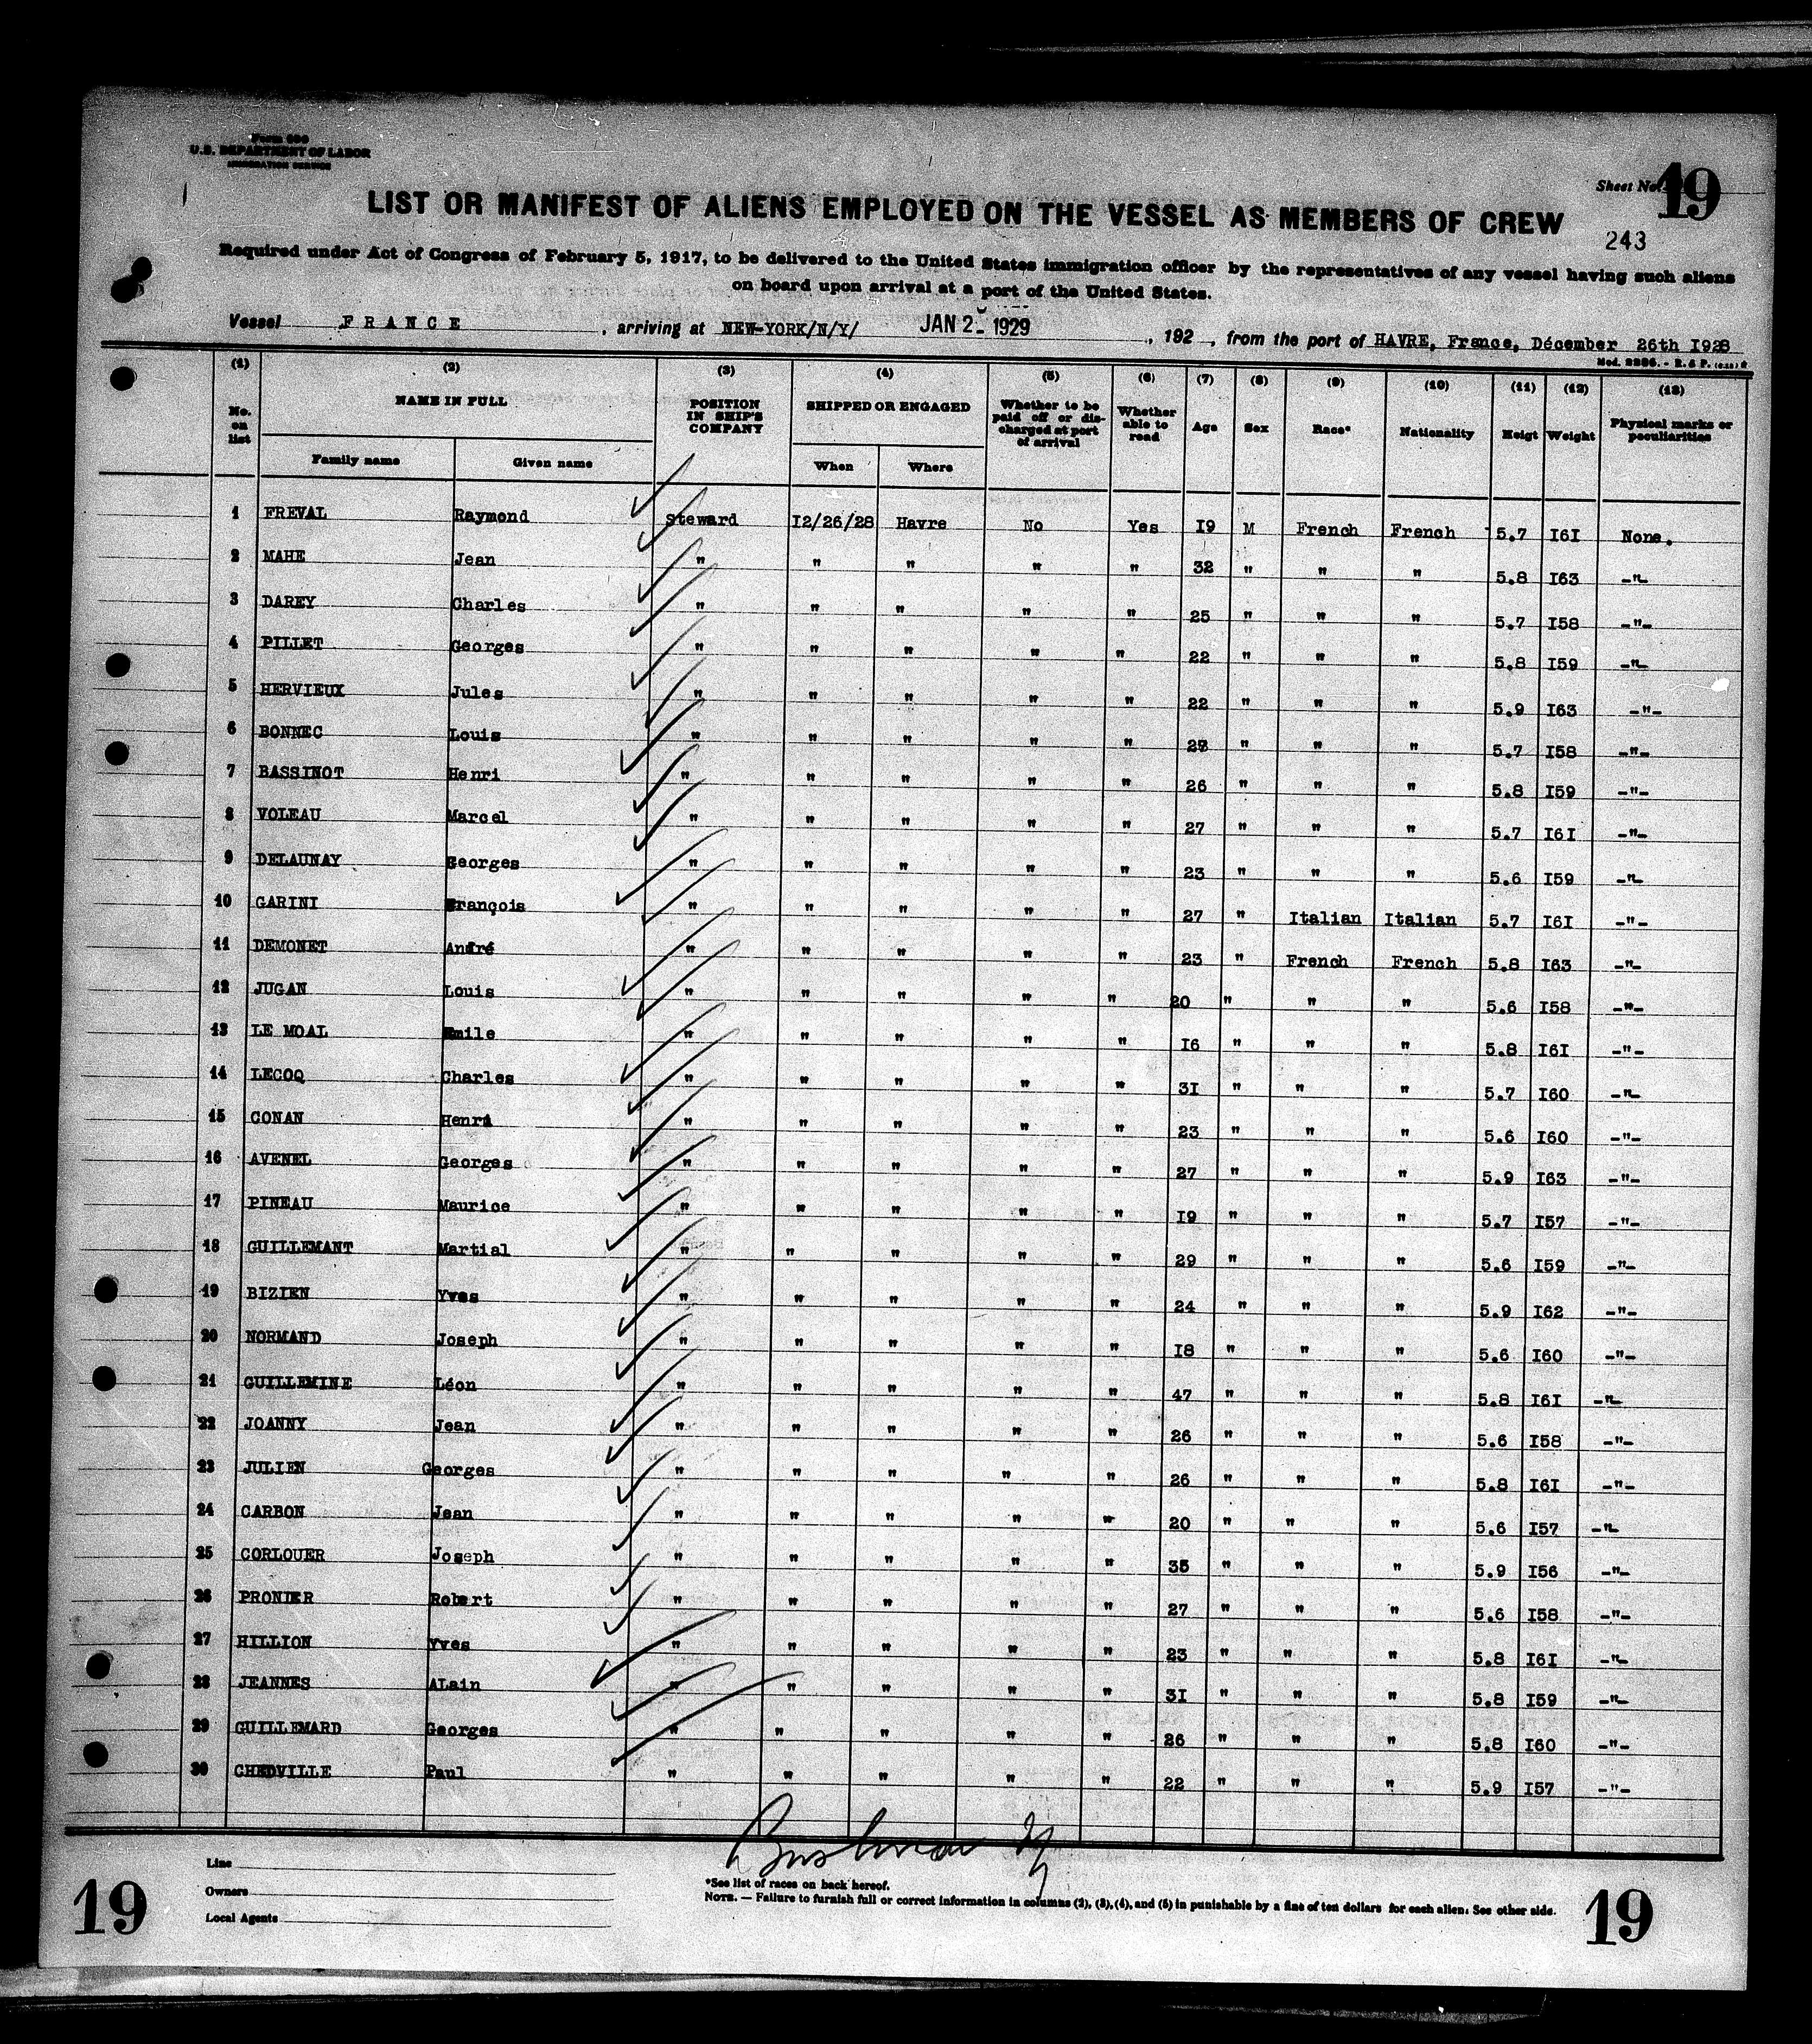 Form 680
U.S. DEPARTMENT OF LABOR
IMMIGRATION SERVICE
Sheet No. 19
LIST OR MANIFEST OF ALIENS EMPLOYED ON THE VESSEL AS MEMBERS OF CREW
243
Required under Act of Congress of February 5, 1917, to be delivered to the United States immigration officer by the representatives of any vessel having such aliens
on board upon arrival at a port of the United States.
Vessel FRANCE, arriving at NEW-YORK/N/Y/ JAN 2- 1929, 192 , from the port of HAVRE, France, Décember 26th I928
(1) (2) (3) (4) (5) (6) (7) (8) (9) (10) (11) (12) (13)
No. on list NAME IN FULL POSITION IN SHIP'S COMPANY SHIPPED OR ENGAGED Whether to be paid off or discharged at port of arrival Whether able to read Age Sex Race* Nationality Heigt Weight Physical marks or peculiarities
Family name Given name When Where
1 FREVAL Raymond Steward I2/26/28 Havre No Yes I9 M French French 5.7 I6I None.
2 MAHE Jean " " " " " 32 " " " 5.8 I63 -"-
3 DAREY Charles " " " " " 25 " " " 5.7 I58 -"-
4 PILLET Georges " " " " " 22 " " " 5.8 I59 -"-
5 HERVIEUX Jules " " " " " 22 " " " 5.9 I63 -"-
6 BONNEC Louis " " " " " " " " 5.7 I58 -"-
7 BASSINOT Henri " " " " " 26 " " " 5.8 I59 -"-
8 VOLEAU Marcel " " " " " 27 " " " 5.7 I6I -"-
9 DELAUNAY Georges " " " " " 23 " " " 5.6 I59 -"-
10 GARINI François " " " " " 27 " Italian Italian 5.7 I6I -"-
11 DEMONET André " " " " " 23 " French French 5.8 I63 -"-
12 JUGAN Louis " " " " " 20 " " " 5.6 I58 -"-
13 LE MOAL Emile " " " " " I6 " " " 5.8 I6I -"-
14 LECOQ Charles " " " " " 3I " " " 5.7 I60 -"-
15 CONAN Henri " " " " " 23 " " " 5.6 I60 -"-
16 AVENEL Georges " " " " " 27 " " " 5.9 I63 -"-
17 PINEAU Maurice " " " " " I9 " " " 5.7 I57 -"-
18 GUILLEMANT Martial " " " " " 29 " " " 5.6 I59 -"-
19 BIZIEN Yves " " " " " 24 " " " 5.9 I62 -"-
20 NORMAND Joseph " " " " " I8 " " " 5.6 I60 -"-
21 GUILLEMINE Léon " " " " " 47 " " " 5.8 I6I -"-
22 JOANNY Jean " " " " " 26 " " " 5.6 I58 -"-
23 JULIEN Georges " " " " " 26 " " " 5.8 I6I -"-
24 CARBON Jean " " " " " 20 " " " 5.6 I57 -"-
25 CORLOUER Joseph " " " " " 35 " " " 5.9 I56 -"-
26 PRONIER Robert " " " " " 27 " " " 5.6 I58 -"-
27 HILLION Yves " " " " " 23 " " " 5.8 I6I -"-
28 JEANNES ALain " " " " " 3I " " " 5.8 I59 -"-
29 GUILLEMARD Georges " " " " " 26 " " " 5.8 I60 -"-
30 CHEDVILLE Paul " " " " " 22 " " " 5.9 I57 -"-
Line
Owners
Local Agents
*See list of races on back hereof.
NOTE. — Failure to furnish full or correct information in columns (2), (3), (4), and (5) in punishable by a fine of ten dollars for each alien. See other side.
19 19